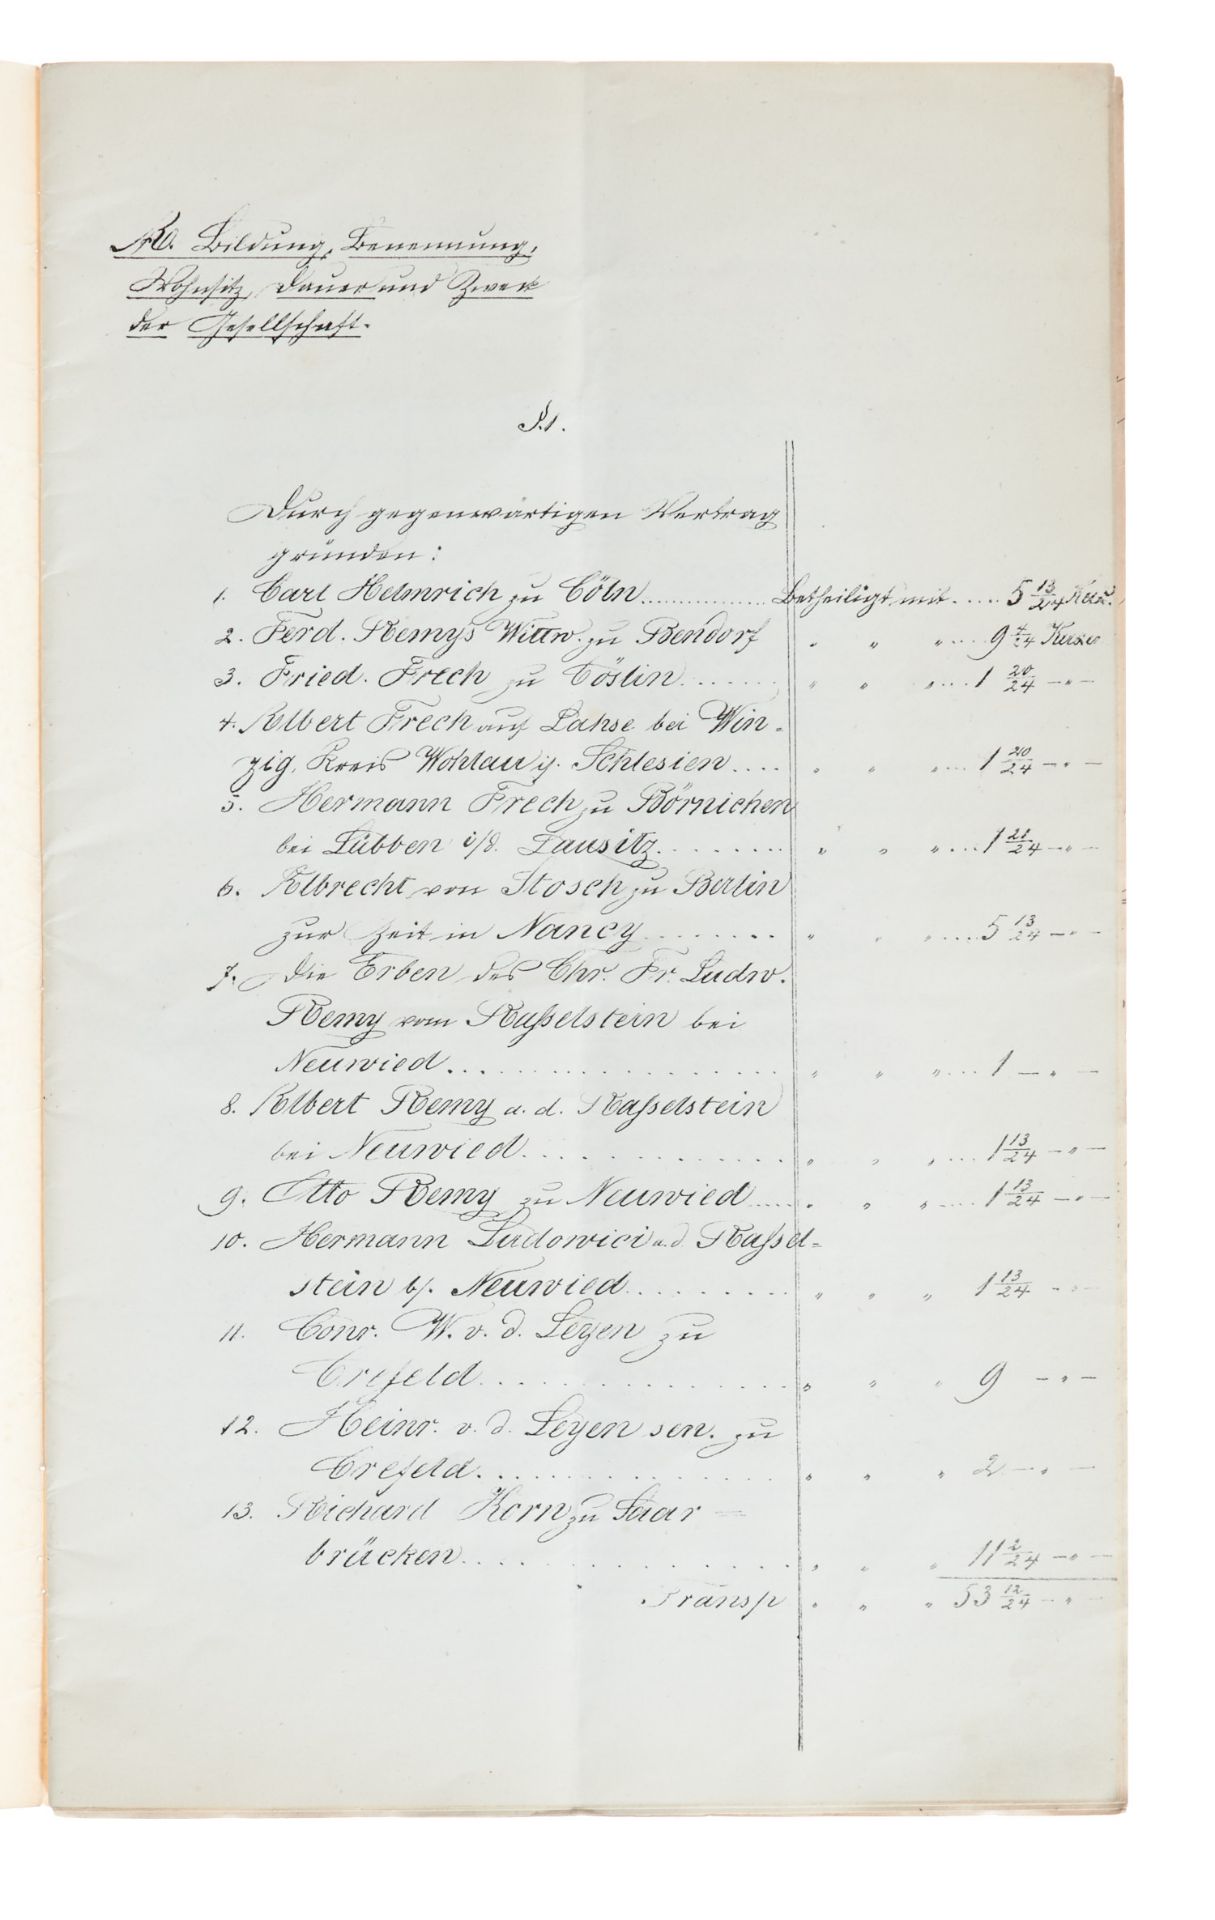 A. Bildung, Benennung,
Wohnsitz, Dauer und Zweck
der Gesellschaft.
§.1.
Durch gegenwärtigen Vertrag
gründen:
1. Carl Helmrich zu Cöln .......... Betheiligt mit ..... 5 13/24 Kux.
2. Ferd. Remy's Wittw. zu Bendorf " " " .... 9 4/24 Kuxe
3. Fried. Frech zu Cöslin ....... " " " .... 1 20/24 — " —
4. Albert Frech auf Lahse bei Win-
zig, Kreis Wohlau i/. Schlesien .... " " " .... 1 20/24 — " —
5. Hermann Frech zu Börnichen
bei Lübben i/d. Lausitz ........ " " " .... 1 21/24 — " —
6. Albrecht von Stosch zu Berlin
zur Zeit in Nancy ........ " " " .... 5 13/24 — " —
7. Die Erben des Chr. Fr. Ludw.
Remy vom Rasselstein bei
Neuwied .................. " " " .... 1 — " —
8. Albert Remy a. d. Rasselstein
bei Neuwied .............. " " " .... 1 13/24 — " —
9. Otto Remy zu Neuwied ..... " " " .... 1 13/24 — " —
10. Hermann Ludowici a. d. Rassel-
stein b/. Neuwied ......... " " " 1 13/24 — " —
11. Conr. W. v. d. Leyen zu
Crefeld ................ " " " 9 — " —
12. Heinr. v. d. Leyen sen. zu
Crefeld ................ " " " 2 — " —
13. Richard Korn zu Saar-
brücken ................ " " " 11 2/24 — " —
Transp " " " 53 12/24 — " —